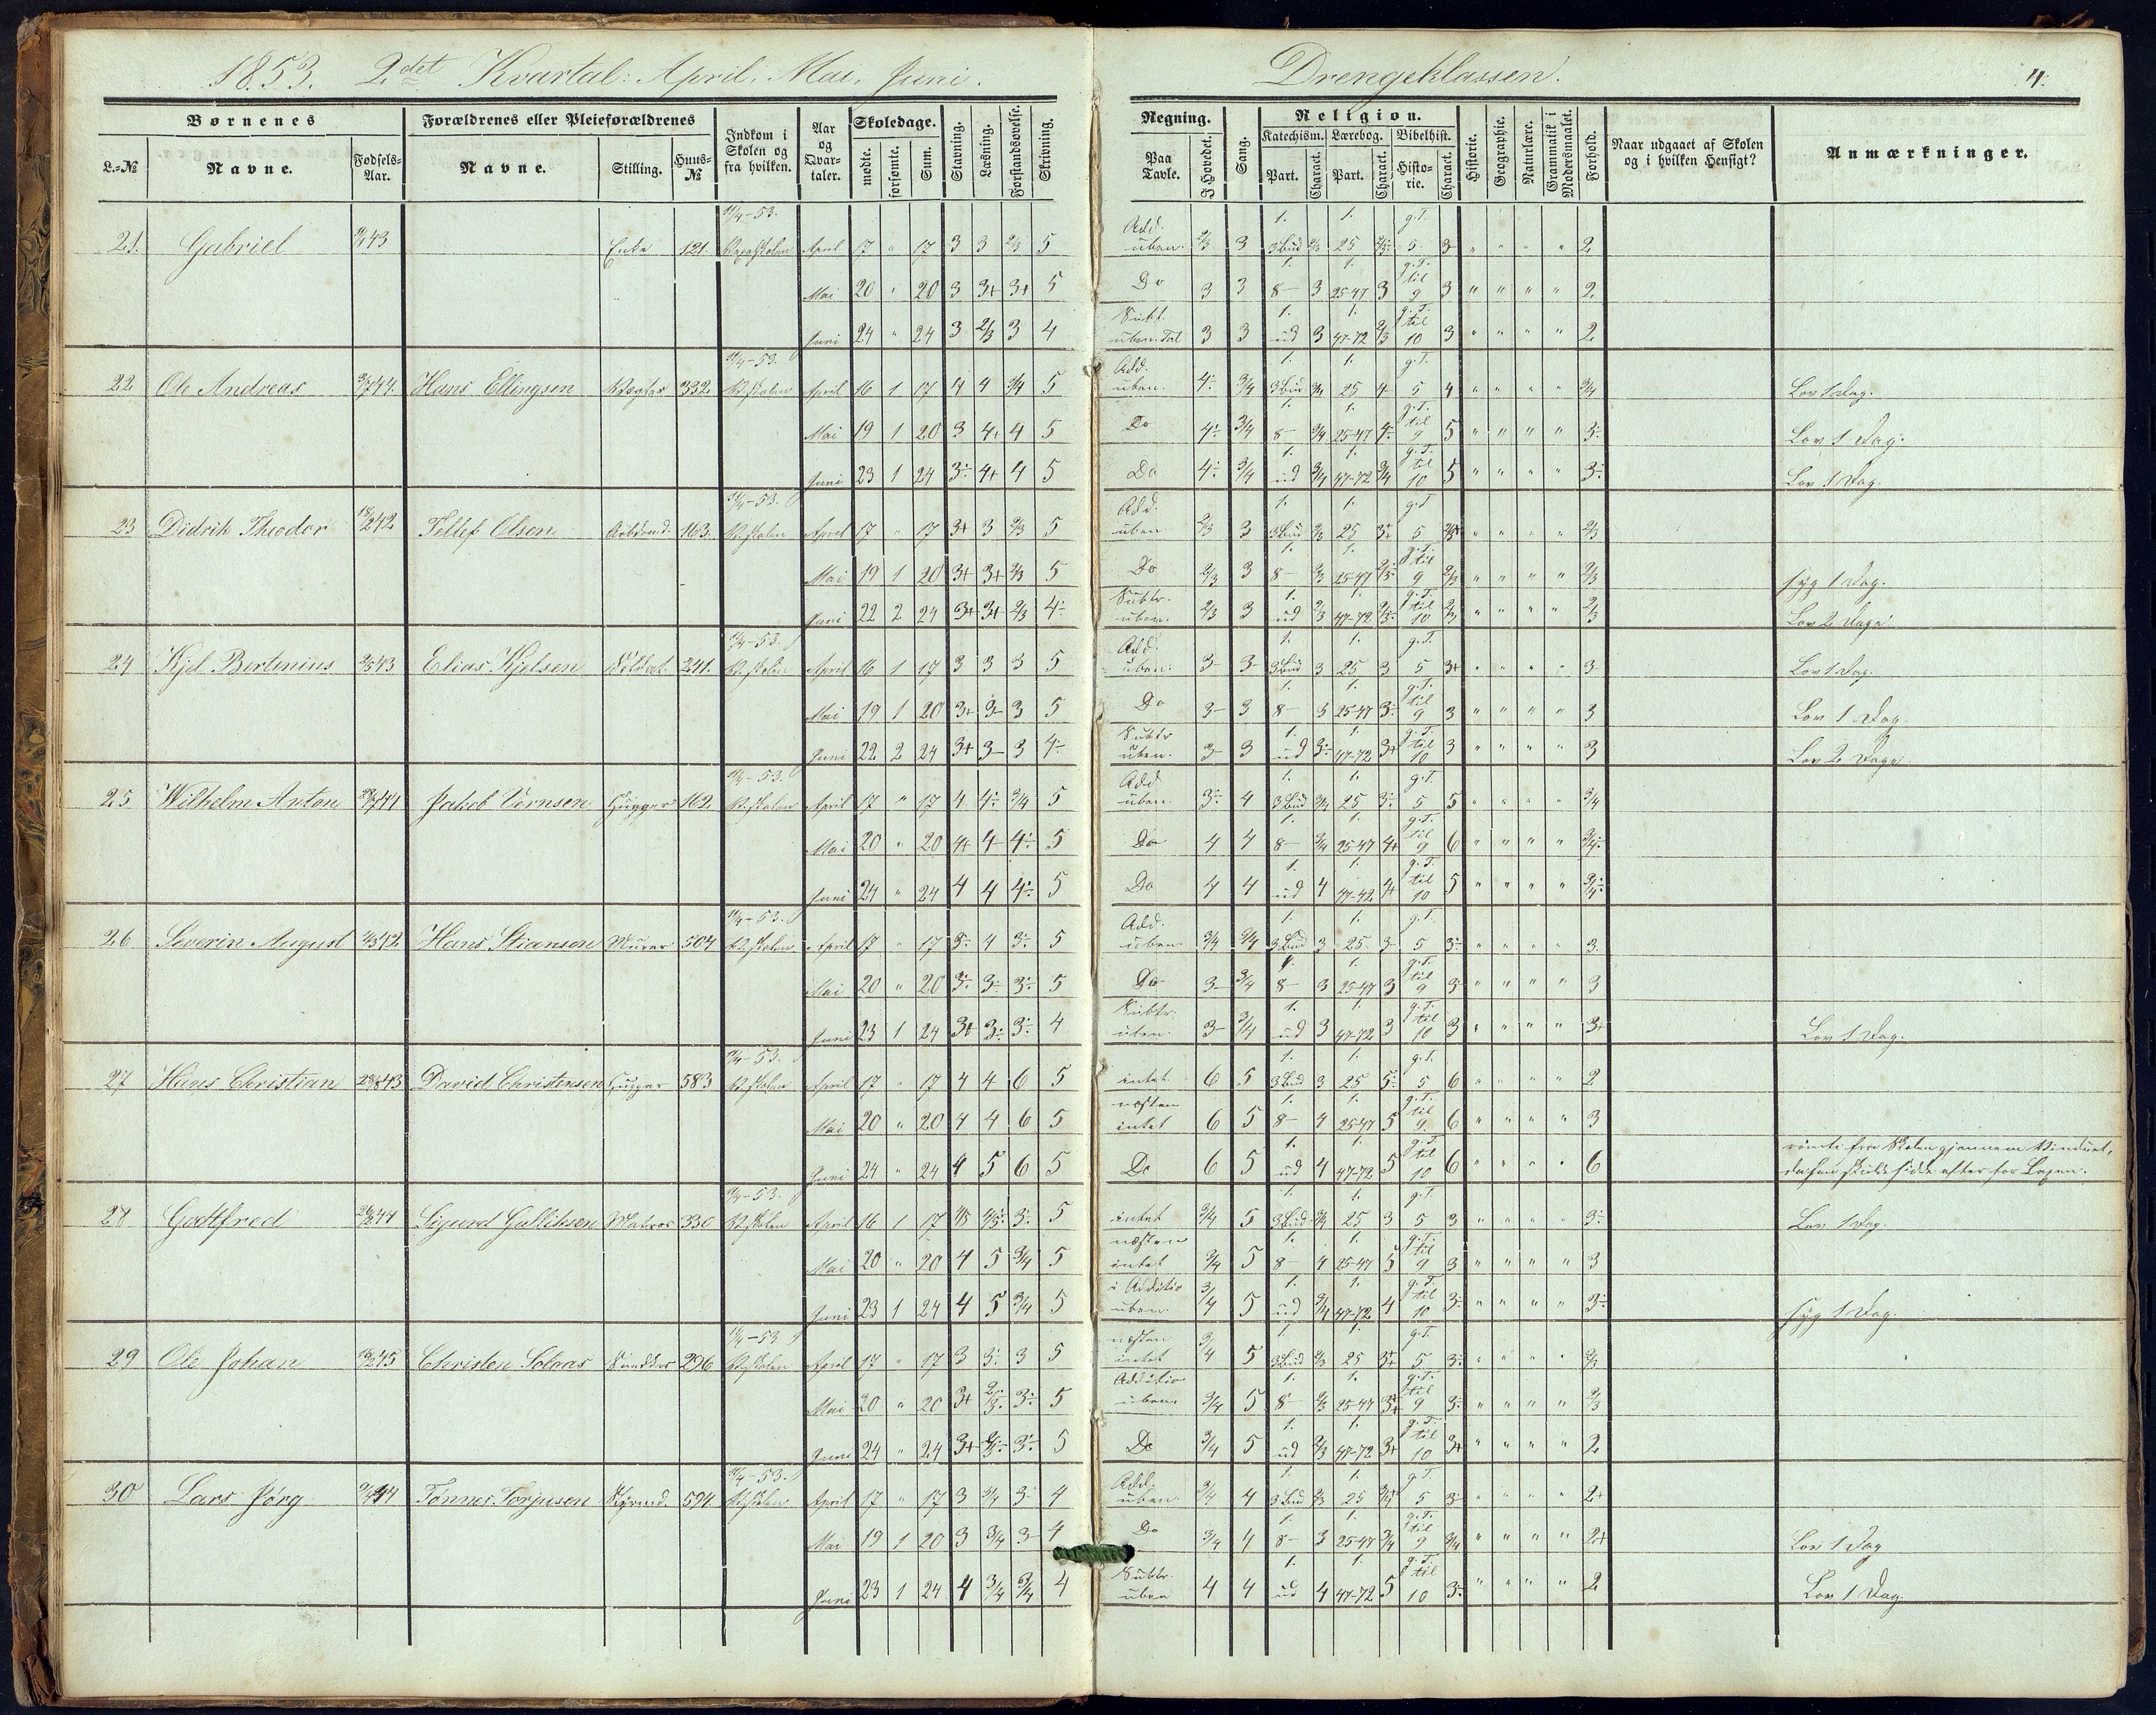 1853. 2det Kvartal: April, Mai, Juni. Drengeklassen. 4.
Børnenes Forældrenes eller Pleieforældrenes Indkom i Skolen og fra hvilken. Aar og Qvartaler. Skoledage. Stavning. Læsning. Forstandsøvelse. Skrivning. Regning. Sang. Religion. Historie. Geographie. Naturlære. Grammatik i Modersmaalet. Forhold. Naar udgaaet af Skolen og i hvilken Hensigt? Anmærkninger.
L.-№ Navne. Fødsels-Aar. Navne. Stilling. Huus-№ mødte. forsømte. Sum. Paa Tavle. I Hovedet. Katechism. Lærebog. Bibelhist.
Part. Charact. Part. Charact. Historie. Charact.
11/4-53. Add. 1. 1. g.T.
21. Gabriel Enke 121. April 17 " 17 3 3 2/3 5 uben. 2/3 3 3 Bud 2/3 25 5 3 " " " " 2
Mai 20 " 20 3 3+ 3+ 5 Do 3 3 8- 3 25-47 3 g.T. til 9 3 " " " " 2
Juni 24 " 24 3 2/3 3 4 Subt. 3 3 ud 3 47-72 2/3 g.T. til 10 3 " " " " 2
11/4-53. Add. 1. 1. g.T.
22 Ole Andreas Hans Ellingsen 332 April 16 1 17 4 4 3/4 5 uben. 4÷ 3/4 3 Bud 3/4 25 4 5 4 " " " " 3/4 Lov 1 Dag.
Mai 19 1 20 3 4+ 4 5 Do 4÷ 3/4 8- 3/4 25-47 4÷ g.T. til 9 5 " " " " 3÷ Lov 1 Dag.
Juni 23 1 24 3÷ 4+ 4 5 Do 4÷ 3/4 ud 3/4 47-72 3/4 g.T. til 10 5 " " " " 3÷ Lov 1 Dag.
11/4-53. Add. 1. 1. g.T
23 Didrik Theodor Tellef Olsen Arbdsmd. 163. April 17 " 17 3+ 3 2/3 5 uben 2/3 3 3 Bud 2/3 25 3+ 5 " " " " 2/3
Mai 19 1 20 3+ 3+ 2/3 5 Do 2/3 3 8- 2/3 25-47 g.T. til 9 2/3 " " " " 2/3 syg 1 Dag.
Juni 22 2 24 3+ 3+ 2/3 4÷ Subtr. uben. 2/3 3 ud 2/3 47-72 g.T. til 10 2/3 " " " " 2/3 Lov 2 Dage
11/4-53. Add. 1. 1. g.T.
24 Kjel Bertinius Elias Kjelsen Soldat 241. April 16 1 17 3 3 3 5 uben. 3- 3- 3 Bud 3 25 3 5 3+ " " " " 3 Lov 1 Dag.
Mai 19 1 20 3+ 3- 3 5 Do 3- 3 8- 3 25-47 3÷ g.T. til 9 3 " " " " 3 Lov 1 Dag.
Juni 22 2 24 3+ 3- 3 4÷ Subtr uben. 3- 3 ud 3÷ 47-72 3+ g.T. til 10 3 " " " " 3 Lov 2 Dage
11/4-53. Add 1. 1. g.T.
25 Wilhelm Anton Jakob Vernsen 162 April 17 " 17 4 4÷ 3/4 5 uben. 3÷ 4 3 Bud 3/4 25 3÷ 5 5 " " " " 3/4
Mai 20 " 20 4+ 4 4÷ 5 Do 4 4 8- 3/4 25-47 4+ g.T. til 9 6 " " " " 3/4÷
Juni 24 " 24 4 4 4÷ 5 Do 4 4 ud 4 47-42 4+ g.T. til 10 5 " " " " 3/4÷
11/4-53. Add. 1. 1. g.T.
26 Severin August Hans Stiansen Murer 504 April 17 " 17 3÷ 4 3÷ 5 uben. 3/4 3/4 3 Bud 3 25 3 5 3÷ " " " " 3.
Mai 20 " 20 3÷ 3÷ 3÷ 5 Do 3- 3/4 8- 3 25-47 3 g.T. til 9 3 " " " " 3
Juni 23 1 24 3+ 3÷ 3÷ 4 Subtr. uben. 3- 3/4 ud 3 47-72 3 g.T. til 10 3 " " " " 3+ Lov 1 Dag.
11/4-53. 1. 1. g.T.
27 Hans Christian David Christensen 583 April 17 " 17 4 4 6 5 intet 6 5 3 Bud 3 25 5÷ 5 6 " " " " 2
Mai 20 " 20 4 4 6 5 næsten intet 6 5 8- 4 25-47 5 g.T. til 9. 6 " " " " 3
Juni 24 " 24 4 5 6 5 Do 6 5 ud 4 47-72 5 g.T. til 10 6 " " " " 6 rømte fra Skolen gjennem Vinduet,
da han skulde sidde efter for Lexen.
11/4-53. 1. 1. g.T.
28 Godtfred Sigurd Gulliksen Matros 336 April 16 1 17 4/5 4/5÷ 3÷ 5 intet 3/4 5 3 Bud 3/4 25 3 5 3 " " " " 3÷ Lov 1 Dag.
Mai 20 " 20 4 5 3/4 5 næsten intet 3/4 5 8- 4 25-47 5 g.T. til 9 3 " " " " 3
Juni 23 1 24 4 5 3/4 5 i Additio uben. 3/4 5 ud 3/4 47-72 4 g.T. til 10 3÷ " " " " 3÷ syg 1 Dag.
11/4-53 1. 1. g.T.
29 Ole Johan Christen Solaas Snedker 296 April 17 " 17 3 3÷ 3 5 næsten intet 3/4 5 3 Bud 2/3 25 3+ 5 3÷ " " " " 2/3
Mai 20 " 20 3+ 2/3÷ 3÷ 5 Additio uben. 3/4 5 8- 2/3 25-47 3+ g.T. til 9 3÷ " " " " 2/3
Juni 24 " 24 3+ 3÷ 5 Do 3/4 5 ud 2/3 47-72 3+ g.T. til 10 3+ " " " " 2
11/4-53. Add. 1. 1. g.T.
30 Lars Jørg Tønnes Torjusen 594 April 17 " 17 3 3/4 3 4 uben. 3/4 4 3 Bud 2/3 25 3/4 5 3 " " " " 2+
Mai 19 1 20 3 3/4 3- 4 Do 3/4 4 8- 3 25-47 3/4 g.T. til 9 3/4 " " " " 2+ Lov 1 Dag
Juni 23 1 24 4 3/4 3/4 4 Subtr. uben 4 4 ud 4 47-72 5 g.T. til 10 3÷ " " " " 2 Lov 1 Dag.